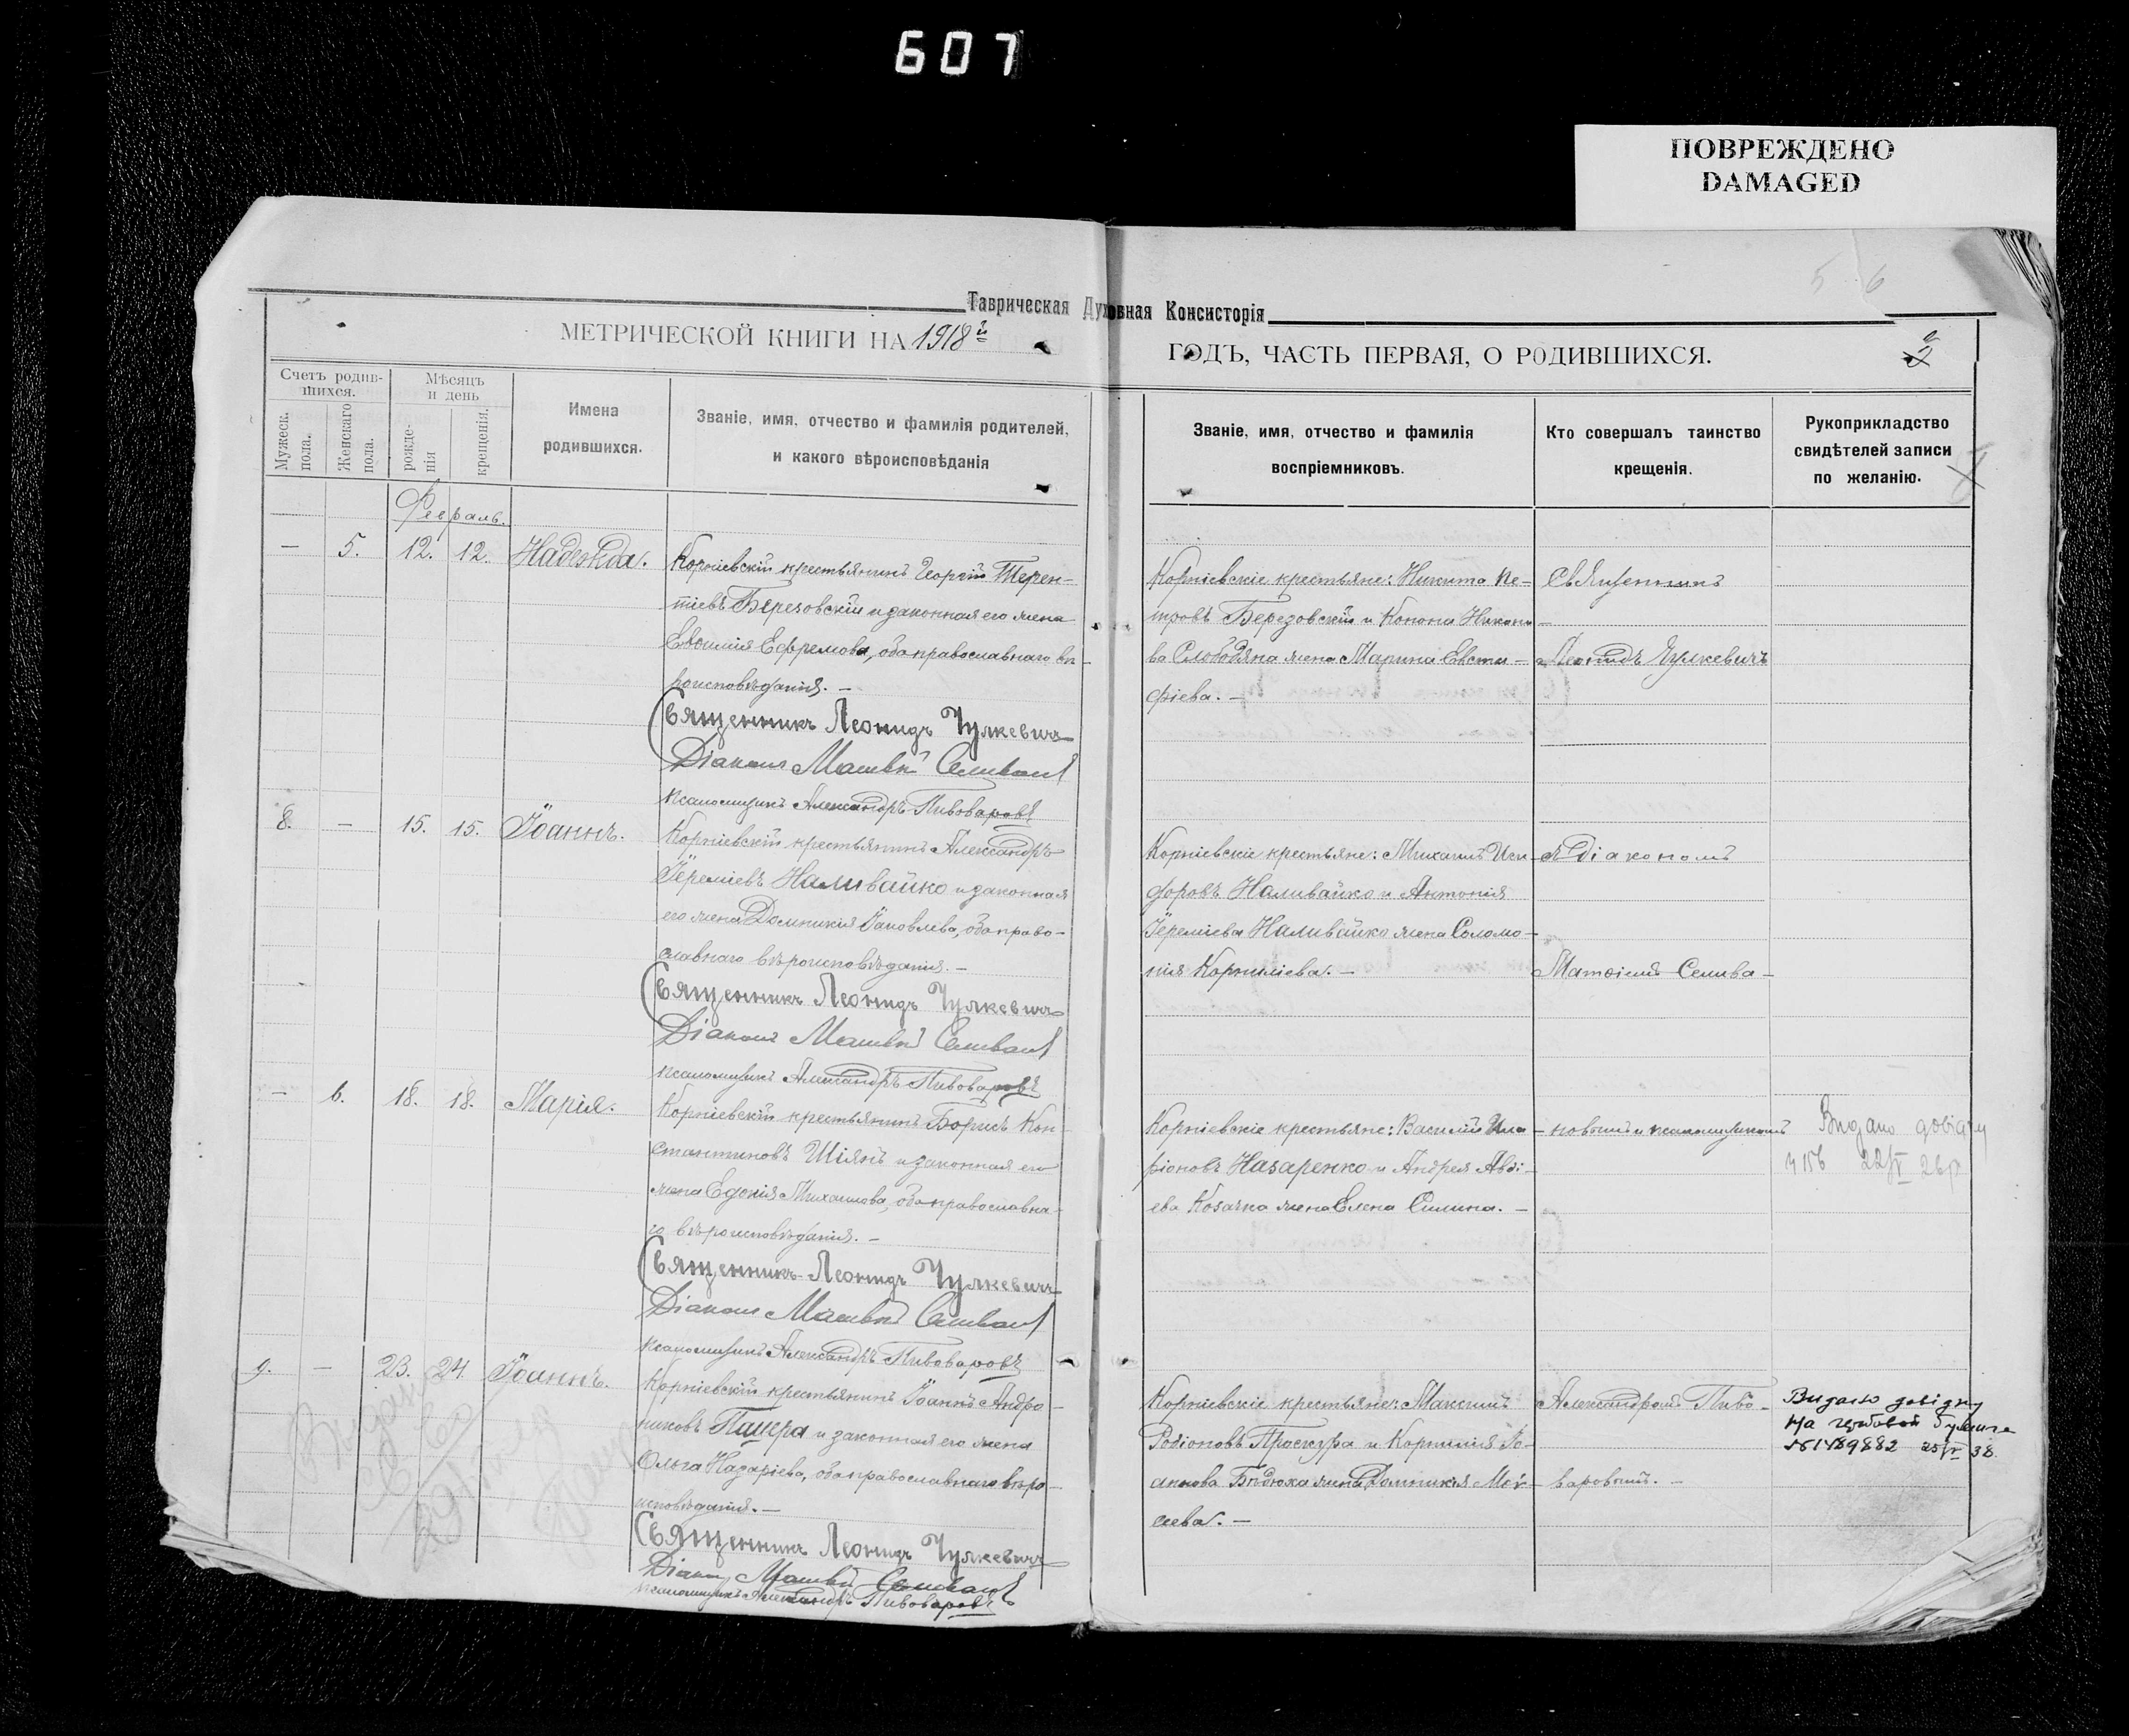 607
ПОВРЕЖДЕНО
DAMAGED
5 6
Таврическая Духовная Консисторія
МЕТРИЧЕСКОЙ КНИГИ НА 1918 й
ГОДЪ, ЧАСТЬ ПЕРВАЯ, О РОДИВШИХСЯ.
Счетъ родив-
шихся.
Мужеск.
пола.
Женскаго
пола.
Мѣсяцъ
и день
рожде-
нія
крещенія.
Имена
родившихся.
Званіе, имя, отчество и фамилія родителей,
и какого вѣроисповѣданія
Званіе, имя, отчество и фамилія
воспріемниковъ.
Кто совершалъ таинство
крещенія.
Рукоприкладство
свидѣтелей записи
по желанію.
Февраль.
— 5. 12. 12. Надежда.
Корніевскій крестьянинъ Георгій Терен-
тіевъ Березовскій и законная его жена
Евѳимія Ефремова, оба православнаго вѣ-
роисповѣданія. —
Священникъ Леонидъ Чулкевичъ
Діаконъ Матвѣй Селиванъ
Псаломщикъ Александръ Пивоваровъ
Корніевскіе крестьяне: Никита Пе-
тровъ Березовскій и Конона Никоно-
ва Слободяна жена Марина Евста-
фіева. —
Священникъ
Леонидъ Чулкевичъ
8. — 15. 15. Іоаннъ.
Корніевскій крестьянинъ Александръ
Іереміевъ Наливайко и законная
его жена Домникія Іаковлева, оба право-
славнаго вѣроисповѣданія. —
Священникъ Леонидъ Чулкевичъ
Діаконъ Матвѣй Селиванъ
Псаломщикъ Александръ Пивоваровъ
Корніевскіе крестьяне: Михаилъ Иси-
форовъ Наливайко и Антонія
Іереміева Наливайко жена Соломо-
нія Корниліева. —
съ діакономъ
Матѳіемъ Селива-
— 6. 18. 18. Марія.
Корніевскій крестьянинъ Борисъ Кон-
стантиновъ Шіянъ и законная его
жена Евдокія Михаилова, оба православна-
го вѣроисповѣданія. —
Священникъ Леонидъ Чулкевичъ
Діаконъ Матвѣй Селиванъ
Псаломщикъ Александръ Пивоваровъ
Корніевскіе крестьяне: Василій Ила-
ріоновъ Назаренко и Андрея Авді-
ева Козачка жена Елена Силина. —
новымъ и псаломщикомъ
Видано довідку
9. — 23. 24. Іоаннъ.
Корніевскій крестьянинъ Іоаннъ Андро-
никовъ Пащера и законная его жена
Ольга Назаріева, оба православнаго вѣро-
исповѣданія. —
Священникъ Леонидъ Чулкевичъ
Діаконъ Матвѣй Селиванъ
Псаломщикъ Александръ Пивоваровъ
Корніевскіе крестьяне: Максимъ
Родіоновъ Проскура и Корнилія Іо-
аннова Бѣдюха жена Домникія Мой-
сеева. —
Александромъ Пиво-
варовымъ. —
Видано довідку
на гербовой бумаге